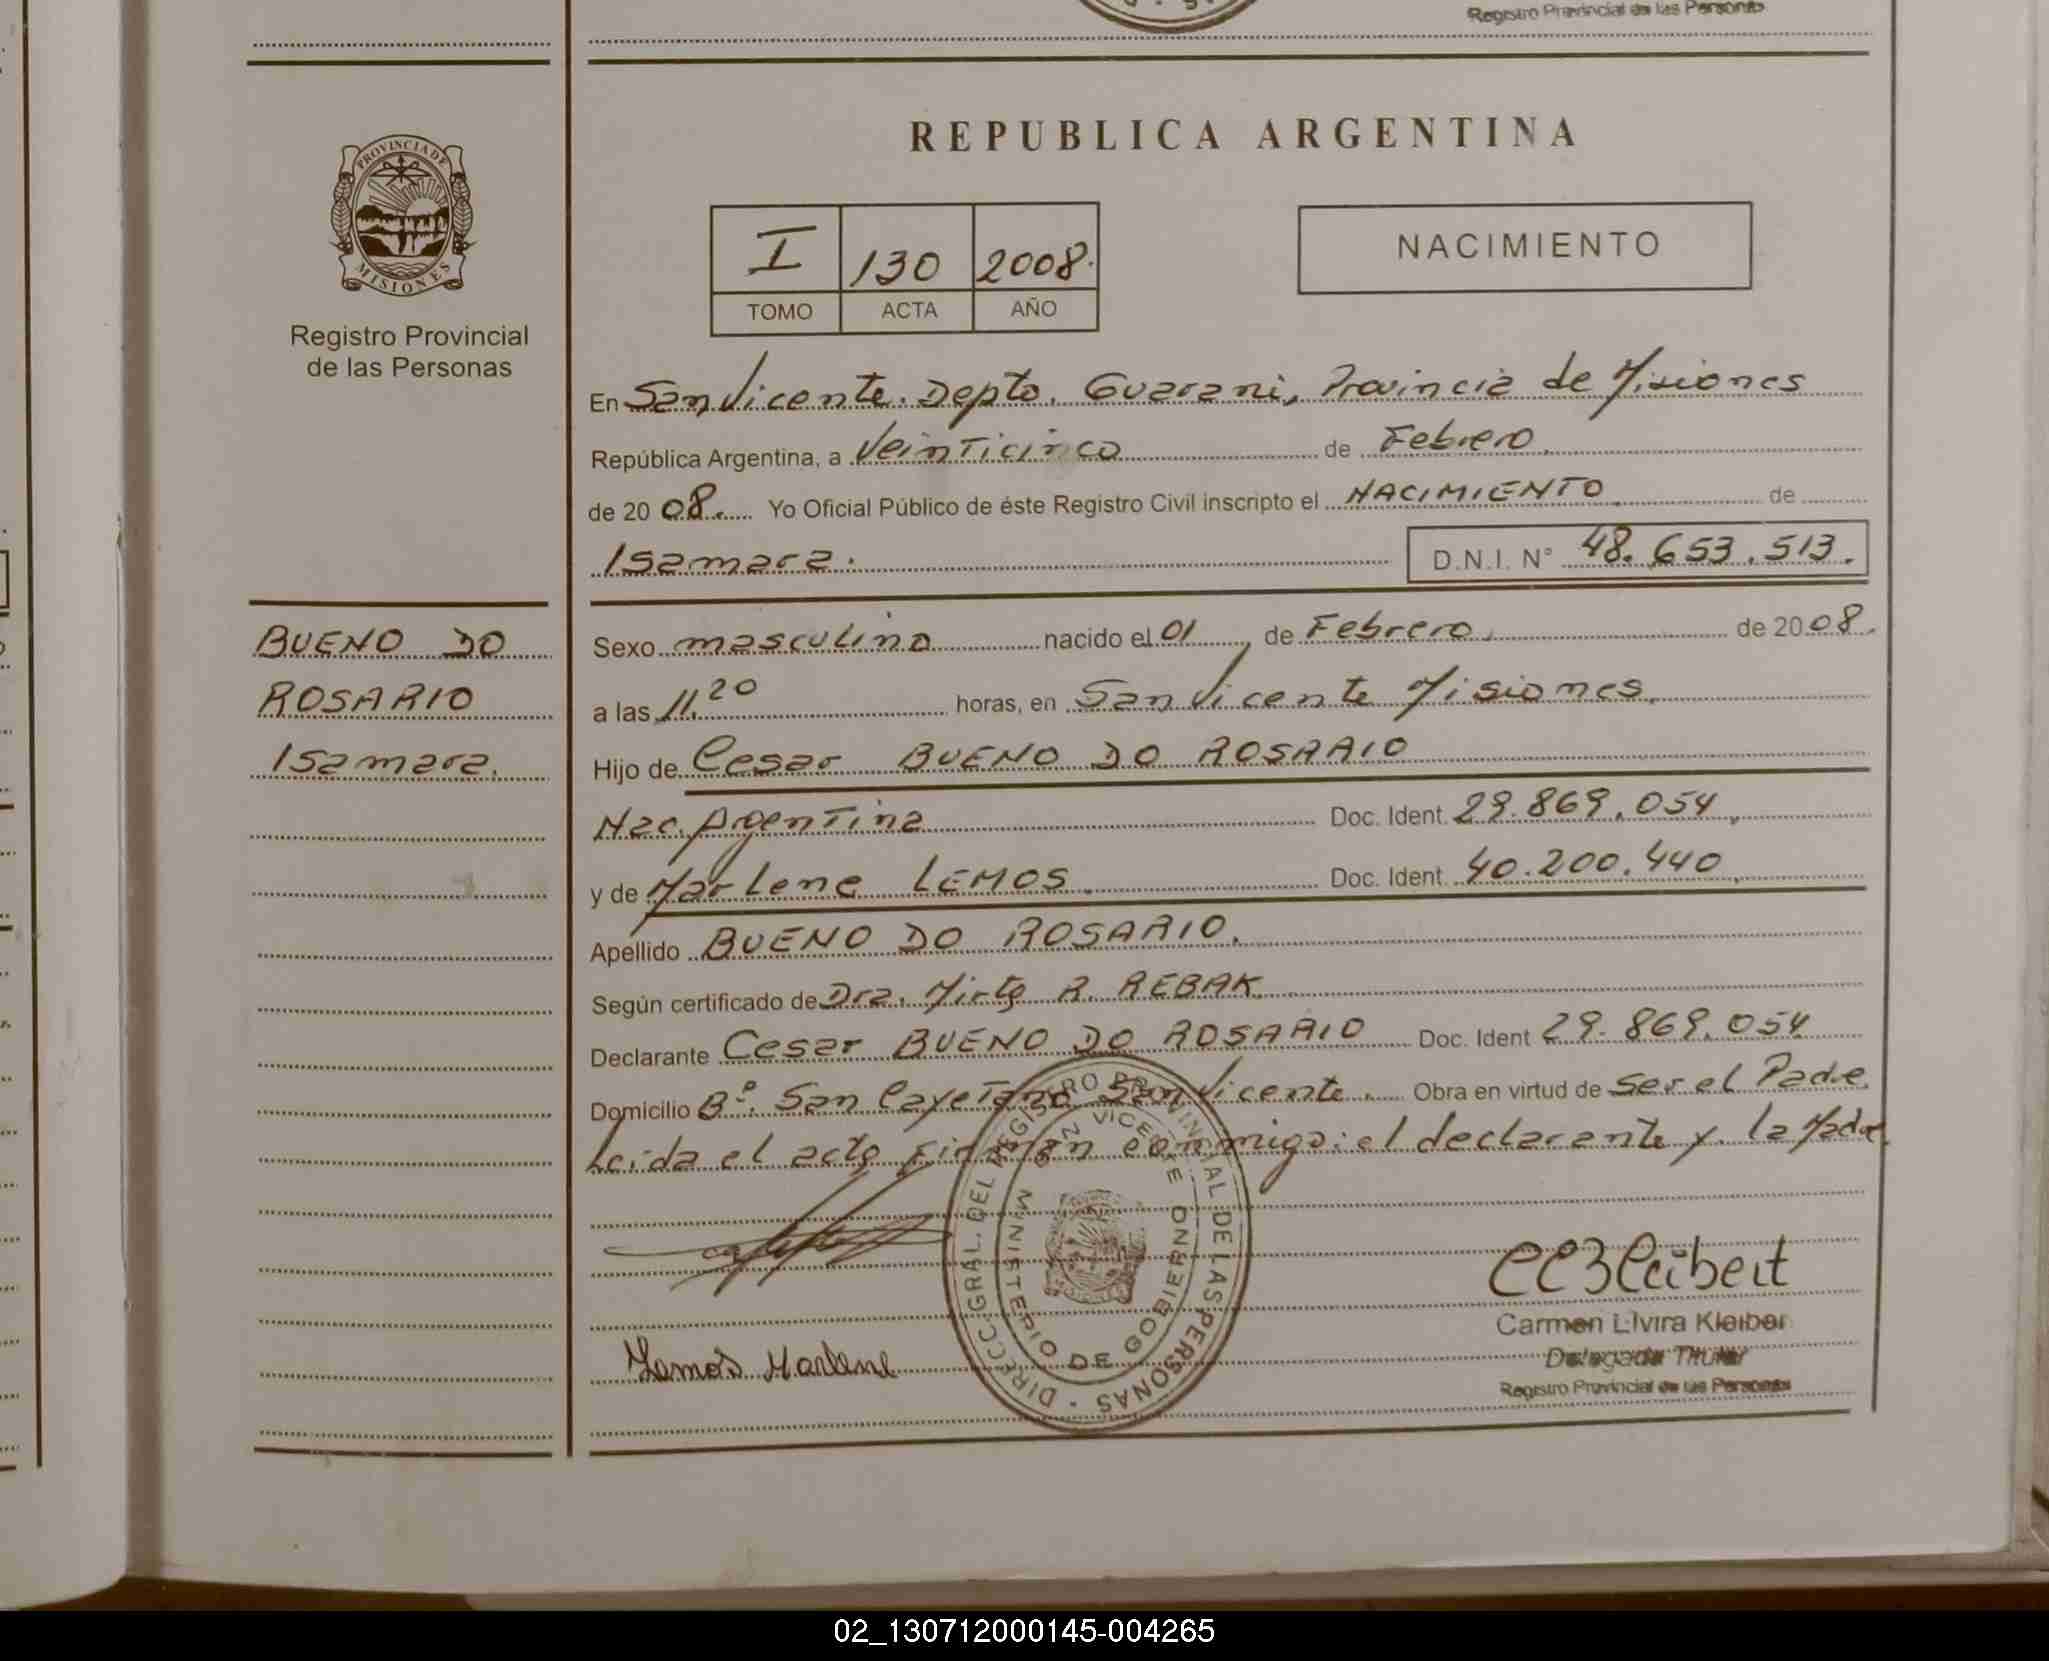 Registro Provincial de las Personas
REPUBLICA ARGENTINA
PROVINCIA DE
MISIONES
Registro Provincial
de las Personas
I 130 2008.
TOMO ACTA AÑO
NACIMIENTO
En San Vicente. Depto. Guarani, Provincia de Misiones
República Argentina, a Veinticinco de Febrero.
de 20 08. Yo Oficial Público de éste Registro Civil inscripto el NACIMIENTO de
Isamara. D.N.I. N° 48.653.513.
BUENO DO
ROSARIO
Isamara.
Sexo masculino nacido el 01 de Febrero. de 20 08.
a las 11.20 horas, en San Vicente Misiones.
Hijo de Cesar BUENO DO ROSARIO
Nac. Argentina Doc. Ident. 29.869.054.
y de Marlene LEMOS. Doc. Ident. 40.200.440.
Apellido BUENO DO ROSARIO.
Según certificado de Dra. Mirta R. REBAK
Declarante Cesar BUENO DO ROSARIO Doc. Ident 29.869.054
Domicilio B°. San Cayetano San Vicente. Obra en virtud de Ser el Padre.
Leida el acta firman conmigo: el declarante y la Madre.
DIRECC. GRAL. DEL REGISTRO PROVINCIAL DE LAS PERSONAS
MINISTERIO DE GOBIERNO
SAN VICENTE
Lemos Marlene
Carmen Elvira Kleiber
Delegada Titular
Registro Provincial de las Personas
02_130712000145-004265